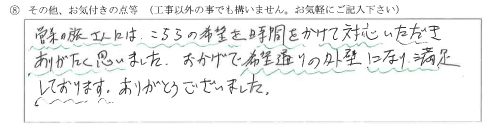 ⑧ その他、お気付きの点等 (工事以外の事でも構いません。お気軽にご記入下さい)
営業の豚さんには、こちらの希望を時間をかけて対応いただき
ありがたく思いました。おかげで希望通りの外壁になり、満足
しております。ありがとうございました。